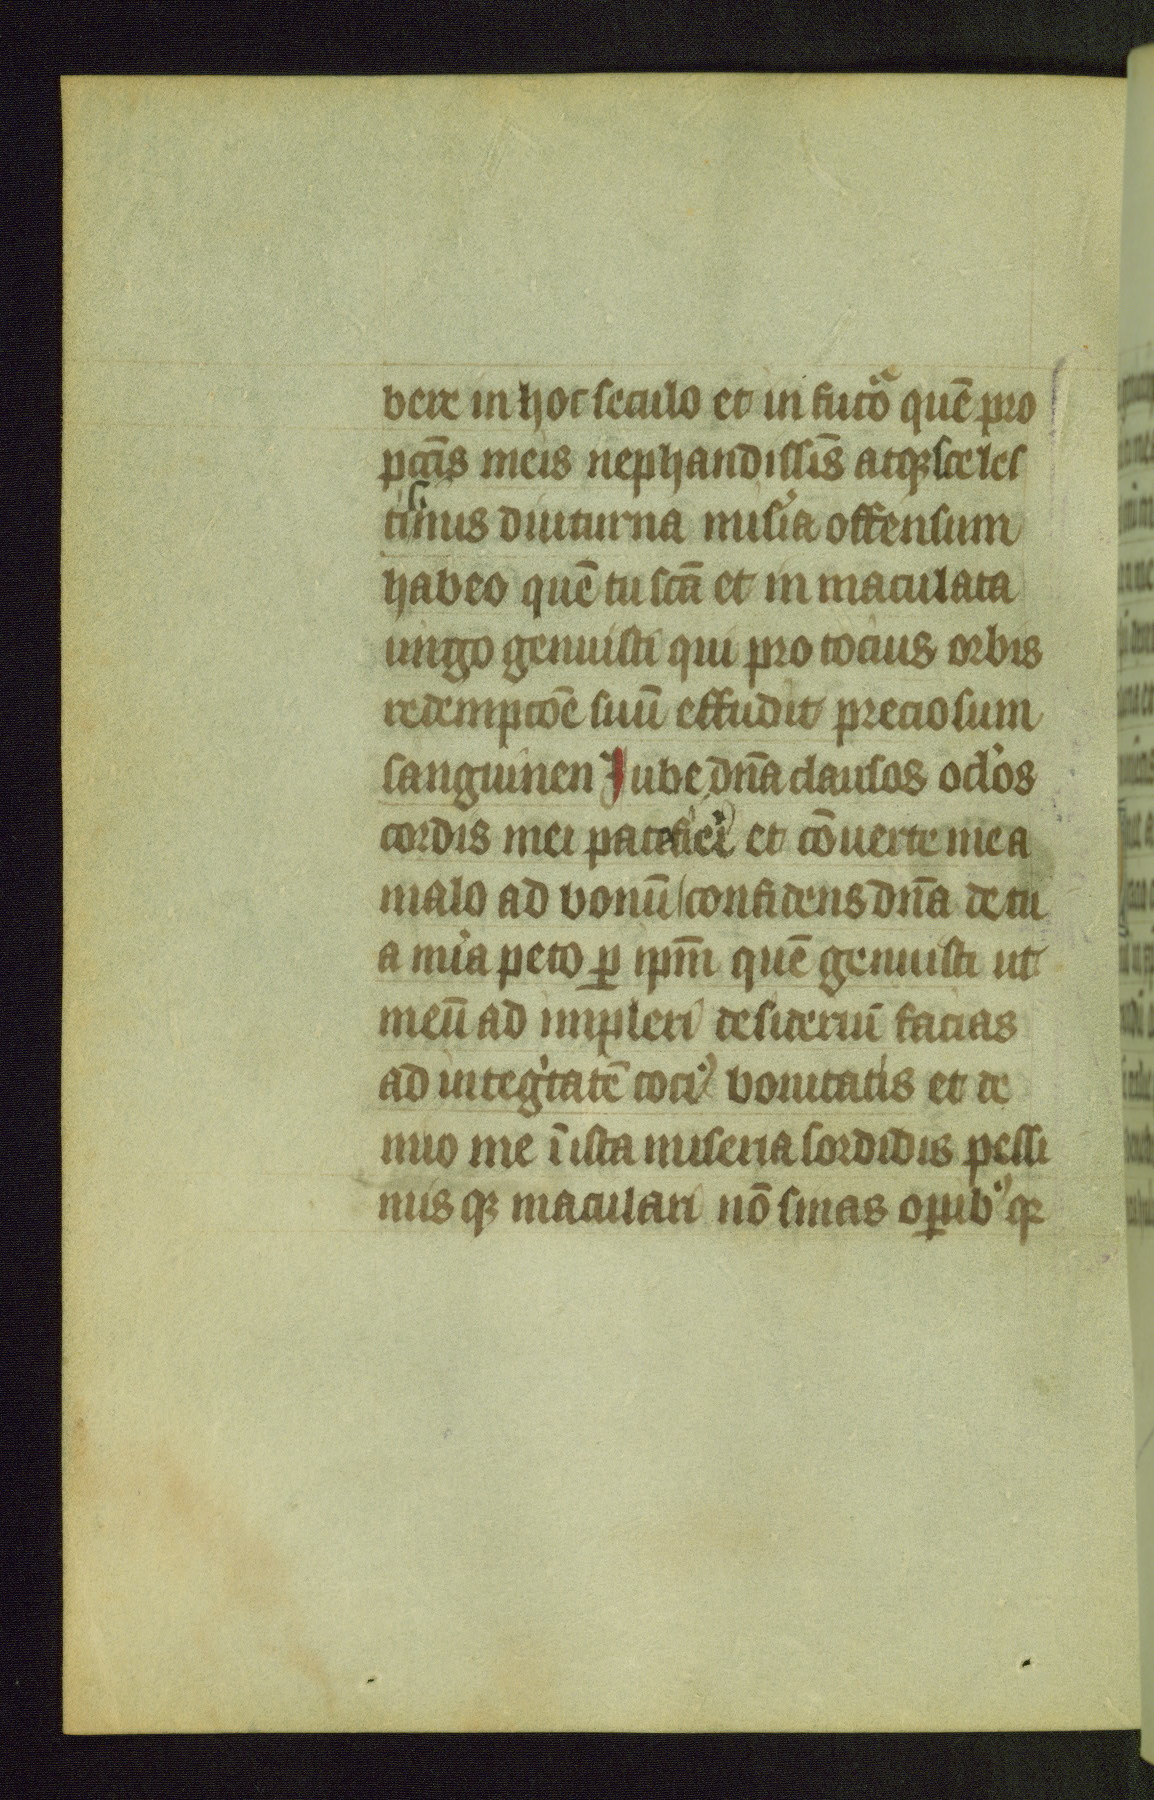 bere in hoc seculo et in futo͛ quē pro
pctīs meis nephandissīs atqꝫ sceles
tissimis diuturna misia offensum
habeo quē tu sctā et in maculata
uirgo genuisti qui pro tocius orbis
redemptōē suū effudit preciosum
sanguinen Iube dn̄a clausos oclos
cordis mei patefieri et cōuerte me a
malo ad bonū confidens dn̄a de tu
a mia peto ꝑ ipm̄ quē genuisti ut
meū ad impleri desideriū facias
ad integtatē toci⁹ bonitatis et de
nuo me ī ista miseria sordidis pessi
mis qꝫ maculari nō sinas oꝑib⁹ qꝫ